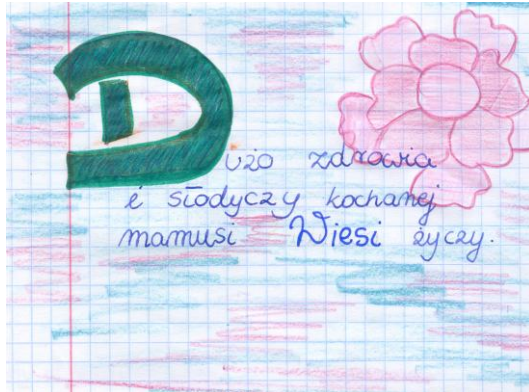 Dużo zdrowia
i słodyczy kochanej
mamusi Wiesi życzy.